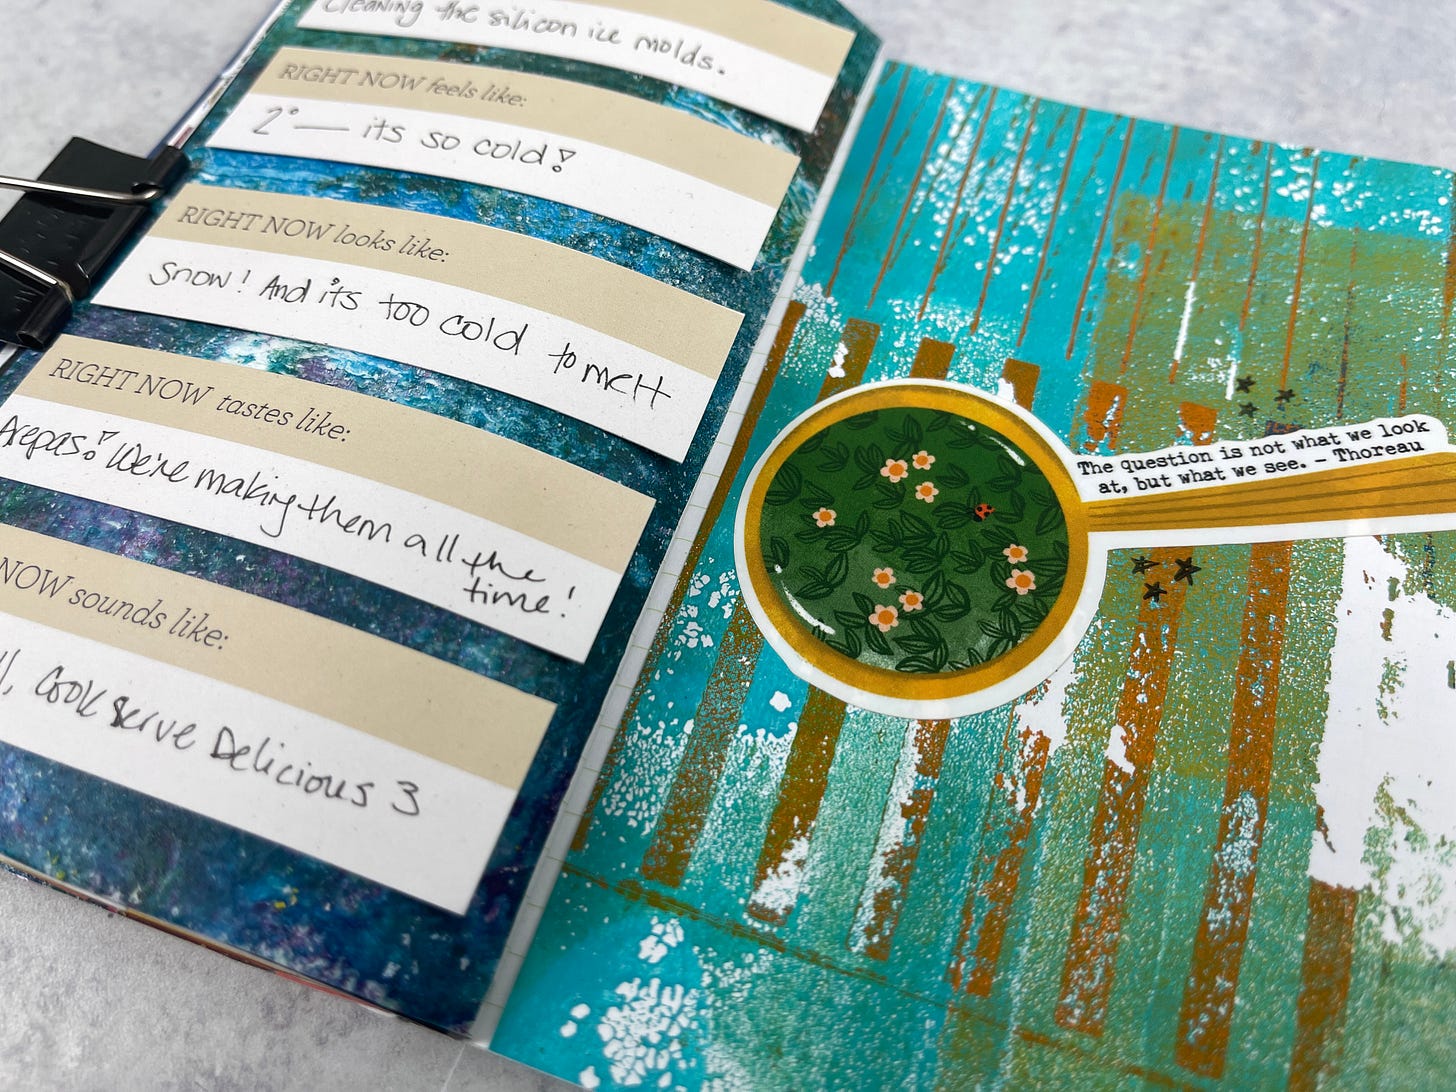 Cleaning the silicon ice molds.
RIGHT NOW feels like:
2° — its so cold!
RIGHT NOW looks like:
Snow! And it's too cold to melt
RIGHT NOW tastes like:
Arepas! We're making them all the
time!
NOW sounds like:
Cook Serve Delicious 3
The question is not what we look
at, but what we see. – Thoreau